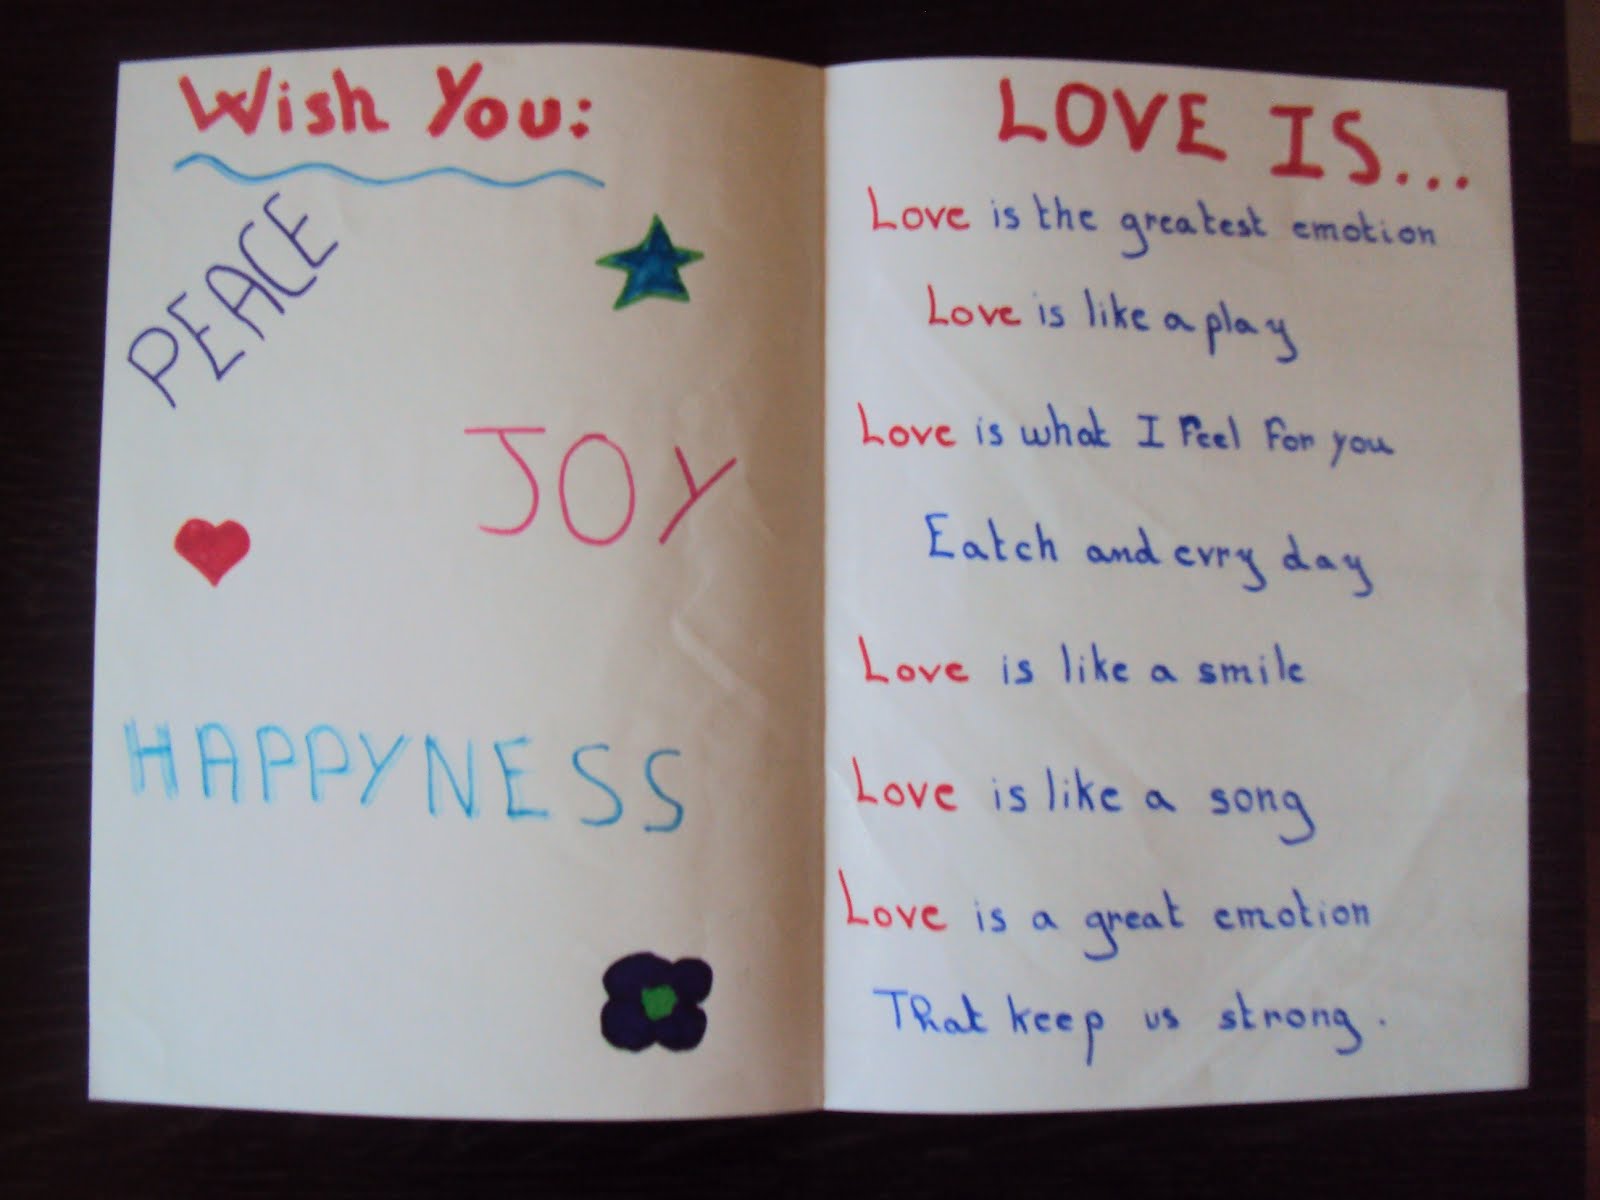 Wish You:
PEACE
JOY
HAPPYNESS
LOVE IS...
Love is the greatest emotion
Love is like a play
Love is what I feel for you
Eatch and evry day
Love is like a smile
Love is like a song
Love is a great emotion
That keep us strong.